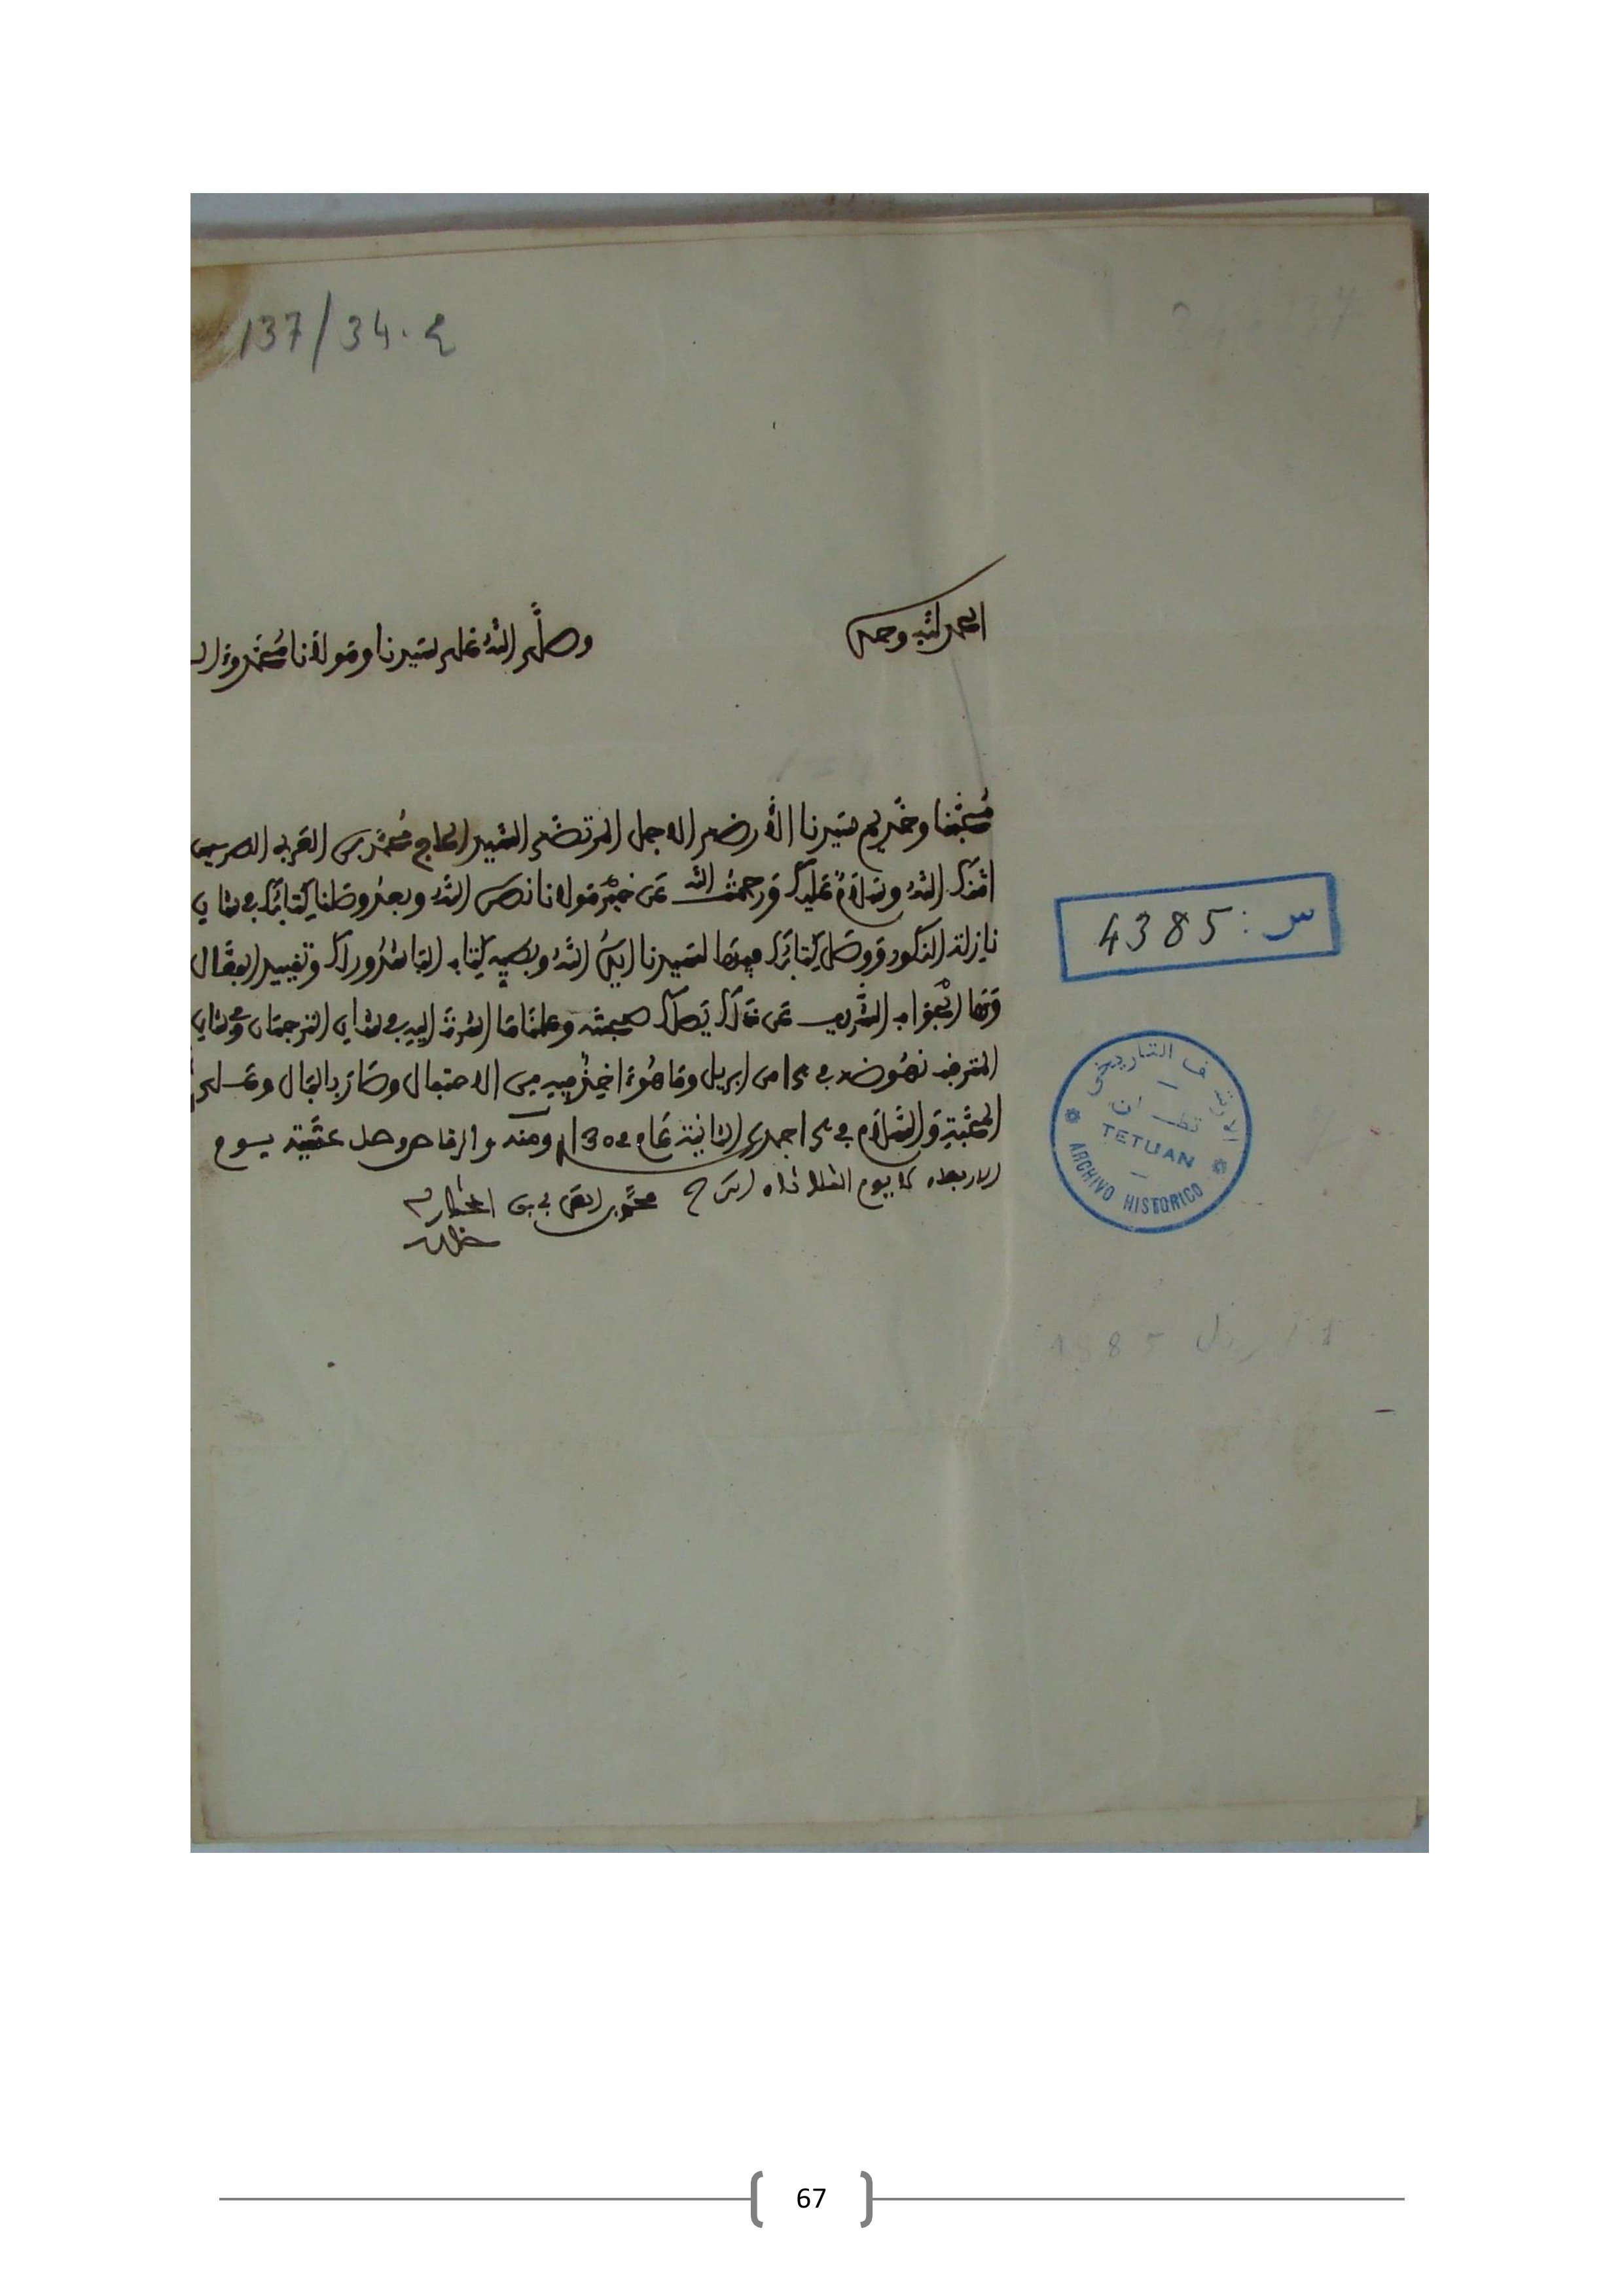 137/34.2
الحمد لله وحده
وصلى الله على سيدنا ومولانا محمد وءال
محبنا وخديم سيدنا الأرضى الاجل المرتضى السيد الحاج محمد بن العربي الطريس
امنك الله وسلام عليك ورحمت الله عن خير مولانا نصره الله وبعد وصلنا كتابك في شان
نازلة المذكور ووصل كتابك فيها لسيدنا ايده الله وبطيه كتاب الباشدور وتقييد
وها الجواب الشريف عن ذلك يصلك صحبته وعلمنا ما اشرت اليه في شان الترجمان وفي شان
نهوضه في من ابريل وما هو اخذ فيه من الاحتفال وصار بالبال وعلى
المحبة والسلام في جمدى الثانية عام 1302 ومنه والرقاص وصل عشية يوم
الاربعاء يوم الثلاثاء محمد العربي بن المختار
خار الله
س : 4385
الارشيف التاريخي
تطوان
TETUAN
ARCHIVO HISTORICO
67